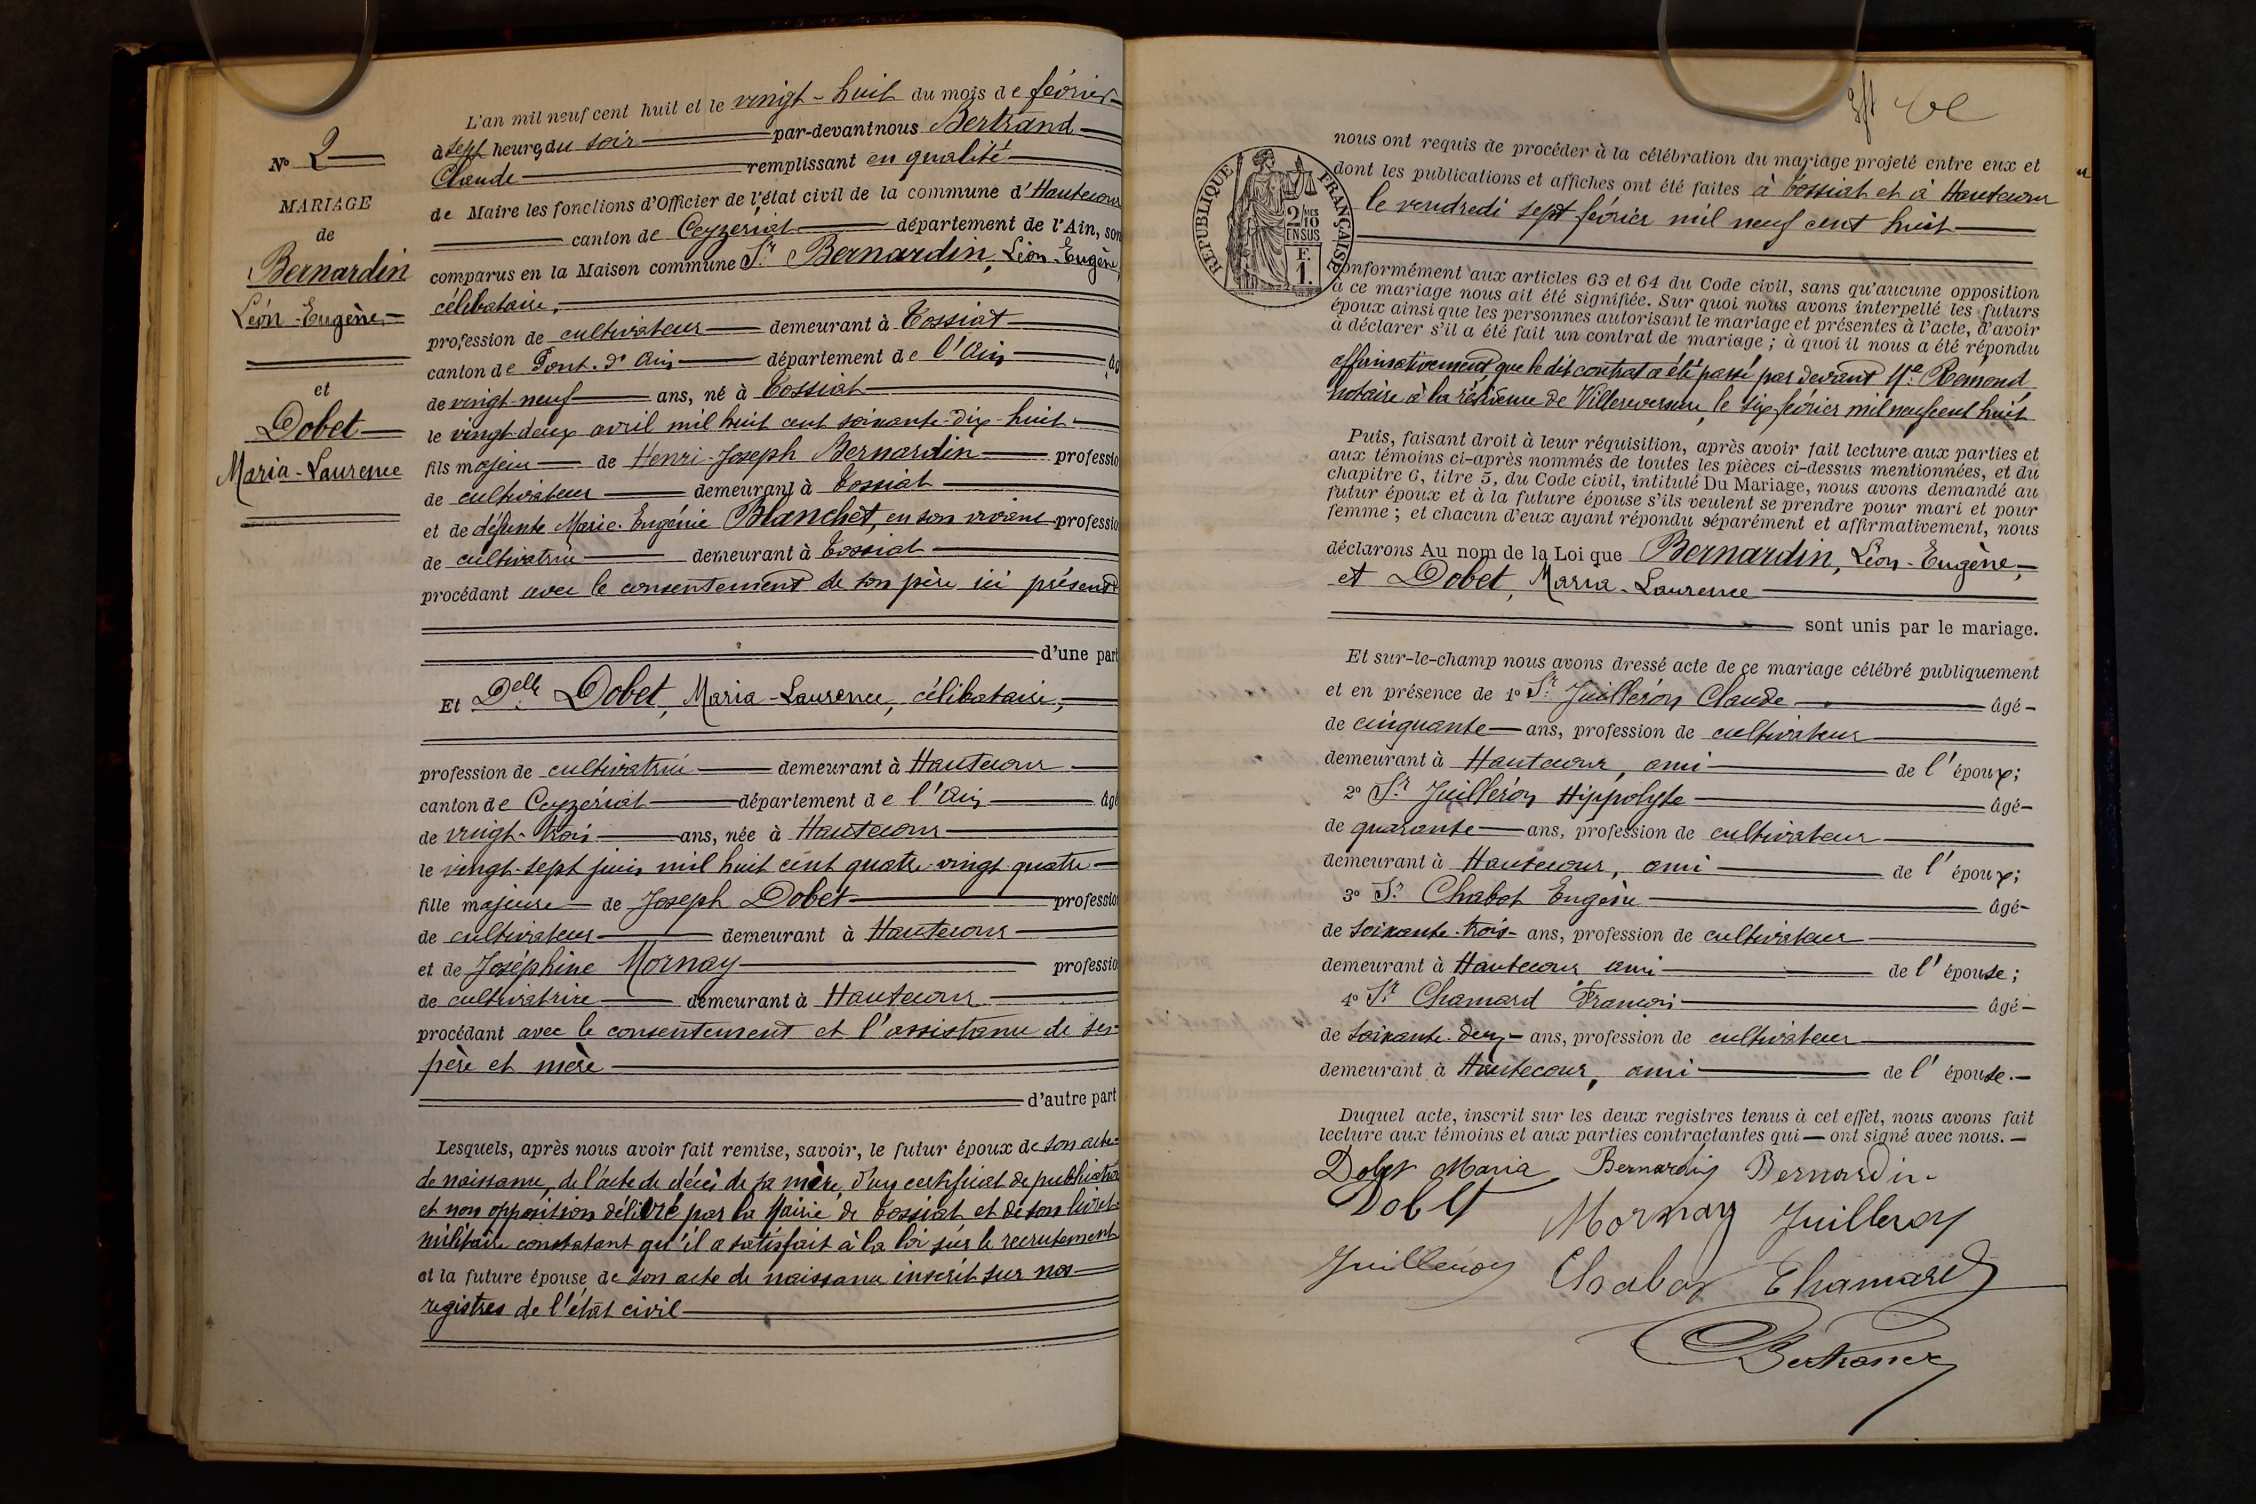 N° 2
MARIAGE
de
Bernardin
Léon-Eugène
et
Dobet
Maria-Laurence
L'an mil neuf cent huit et le vingt-huit du mois de février
à sept heures du soir par-devant nous Bertrand
Claude remplissant en qualité
de Maire les fonctions d'Officier de l'état civil de la commune d'Hautecour
canton de Ceyzériat département de l'Ain, son
comparus en la Maison commune Sr Bernardin, Léon-Eugène,
célibataire,
profession de cultivateur demeurant à Tossiat
canton de Pont-d'Ain département de l'Ain âg
de vingt-neuf ans, né à Tossiat
le vingt-deux avril mil huit cent soixante-dix-huit
fils majeur de Henri-Joseph Bernardin professio
de cultivateur demeurant à Tossiat
et de défunte Marie-Eugénie Blanchet, en son vivant professio
de cultivatrice demeurant à Tossiat
procédant avec le consentement de son père ici présent
d'une part
Et Delle Dobet, Maria-Laurence, célibataire,
profession de cultivatrice demeurant à Hautecour
canton de Ceyzériat département de l'Ain âgé
de vingt-trois ans, née à Hautecour
le vingt-sept juin mil huit cent quatre-vingt-quatre
fille majeure de Joseph Dobet professio
de cultivateur demeurant à Hautecour
et de Joséphine Mornay professio
de cultivatrice demeurant à Hautecour
procédant avec le consentement et l'assistance de ses
père et mère
d'autre part
Lesquels, après nous avoir fait remise, savoir, le futur époux de son acte
de naissance, de l'acte de décès de sa mère, d'un certificat de publication
et non opposition délivré par la Mairie de Tossiat et de son livret
militaire constatant qu'il a satisfait à la loi sur le recrutement
et la future épouse de son acte de naissance inscrit sur nos
registres de l'état civil
RÉPUBLIQUE FRANÇAISE
2/10 EN SUS
F.
1.
nous ont requis de procéder à la célébration du mariage projeté entre eux et
dont les publications et affiches ont été faites à Tossiat et à Hautecour
le vendredi sept février mil neuf cent huit
conformément aux articles 63 et 64 du Code civil, sans qu'aucune opposition
à ce mariage nous ait été signifiée. Sur quoi nous avons interpellé les futurs
époux ainsi que les personnes autorisant le mariage et présentes à l'acte, d'avoir
à déclarer s'il a été fait un contrat de mariage ; à quoi il nous a été répondu
affirmativement, que le dit contrat a été passé par devant Me Rémond
notaire à la résidence de Villereversure, le six février mil neuf cent huit
Puis, faisant droit à leur réquisition, après avoir fait lecture aux parties et
aux témoins ci-après nommés de toutes les pièces ci-dessus mentionnées, et du
chapitre 6, titre 5, du Code civil, intitulé Du Mariage, nous avons demandé au
futur époux et à la future épouse s'ils veulent se prendre pour mari et pour
femme ; et chacun d'eux ayant répondu séparément et affirmativement, nous
déclarons Au nom de la Loi que Bernardin, Léon-Eugène,
et Dobet, Maria-Laurence
sont unis par le mariage.
Et sur-le-champ nous avons dressé acte de ce mariage célébré publiquement
et en présence de 1° Sr Juilleron Claude âgé
de cinquante ans, profession de cultivateur
demeurant à Hautecour, ami de l'époux;
2° Sr Juilleron Hippolyte âgé
de quarante ans, profession de cultivateur
demeurant à Hautecour, ami de l'époux;
3° Sr Chabot Eugène âgé
de soixante-trois ans, profession de cultivateur
demeurant à Hautecour ami de l'épouse;
4° Sr Chamard François âgé
de soixante-deux ans, profession de cultivateur
demeurant à Hautecour, ami de l'épouse.
Duquel acte, inscrit sur les deux registres tenus à cet effet, nous avons fait
lecture aux témoins et aux parties contractantes qui ont signé avec nous.
Dobet Maria Bernardin Bernardin
Dobet Mornay Juilleron
Juilleron Chabot Chamard
Bertrand